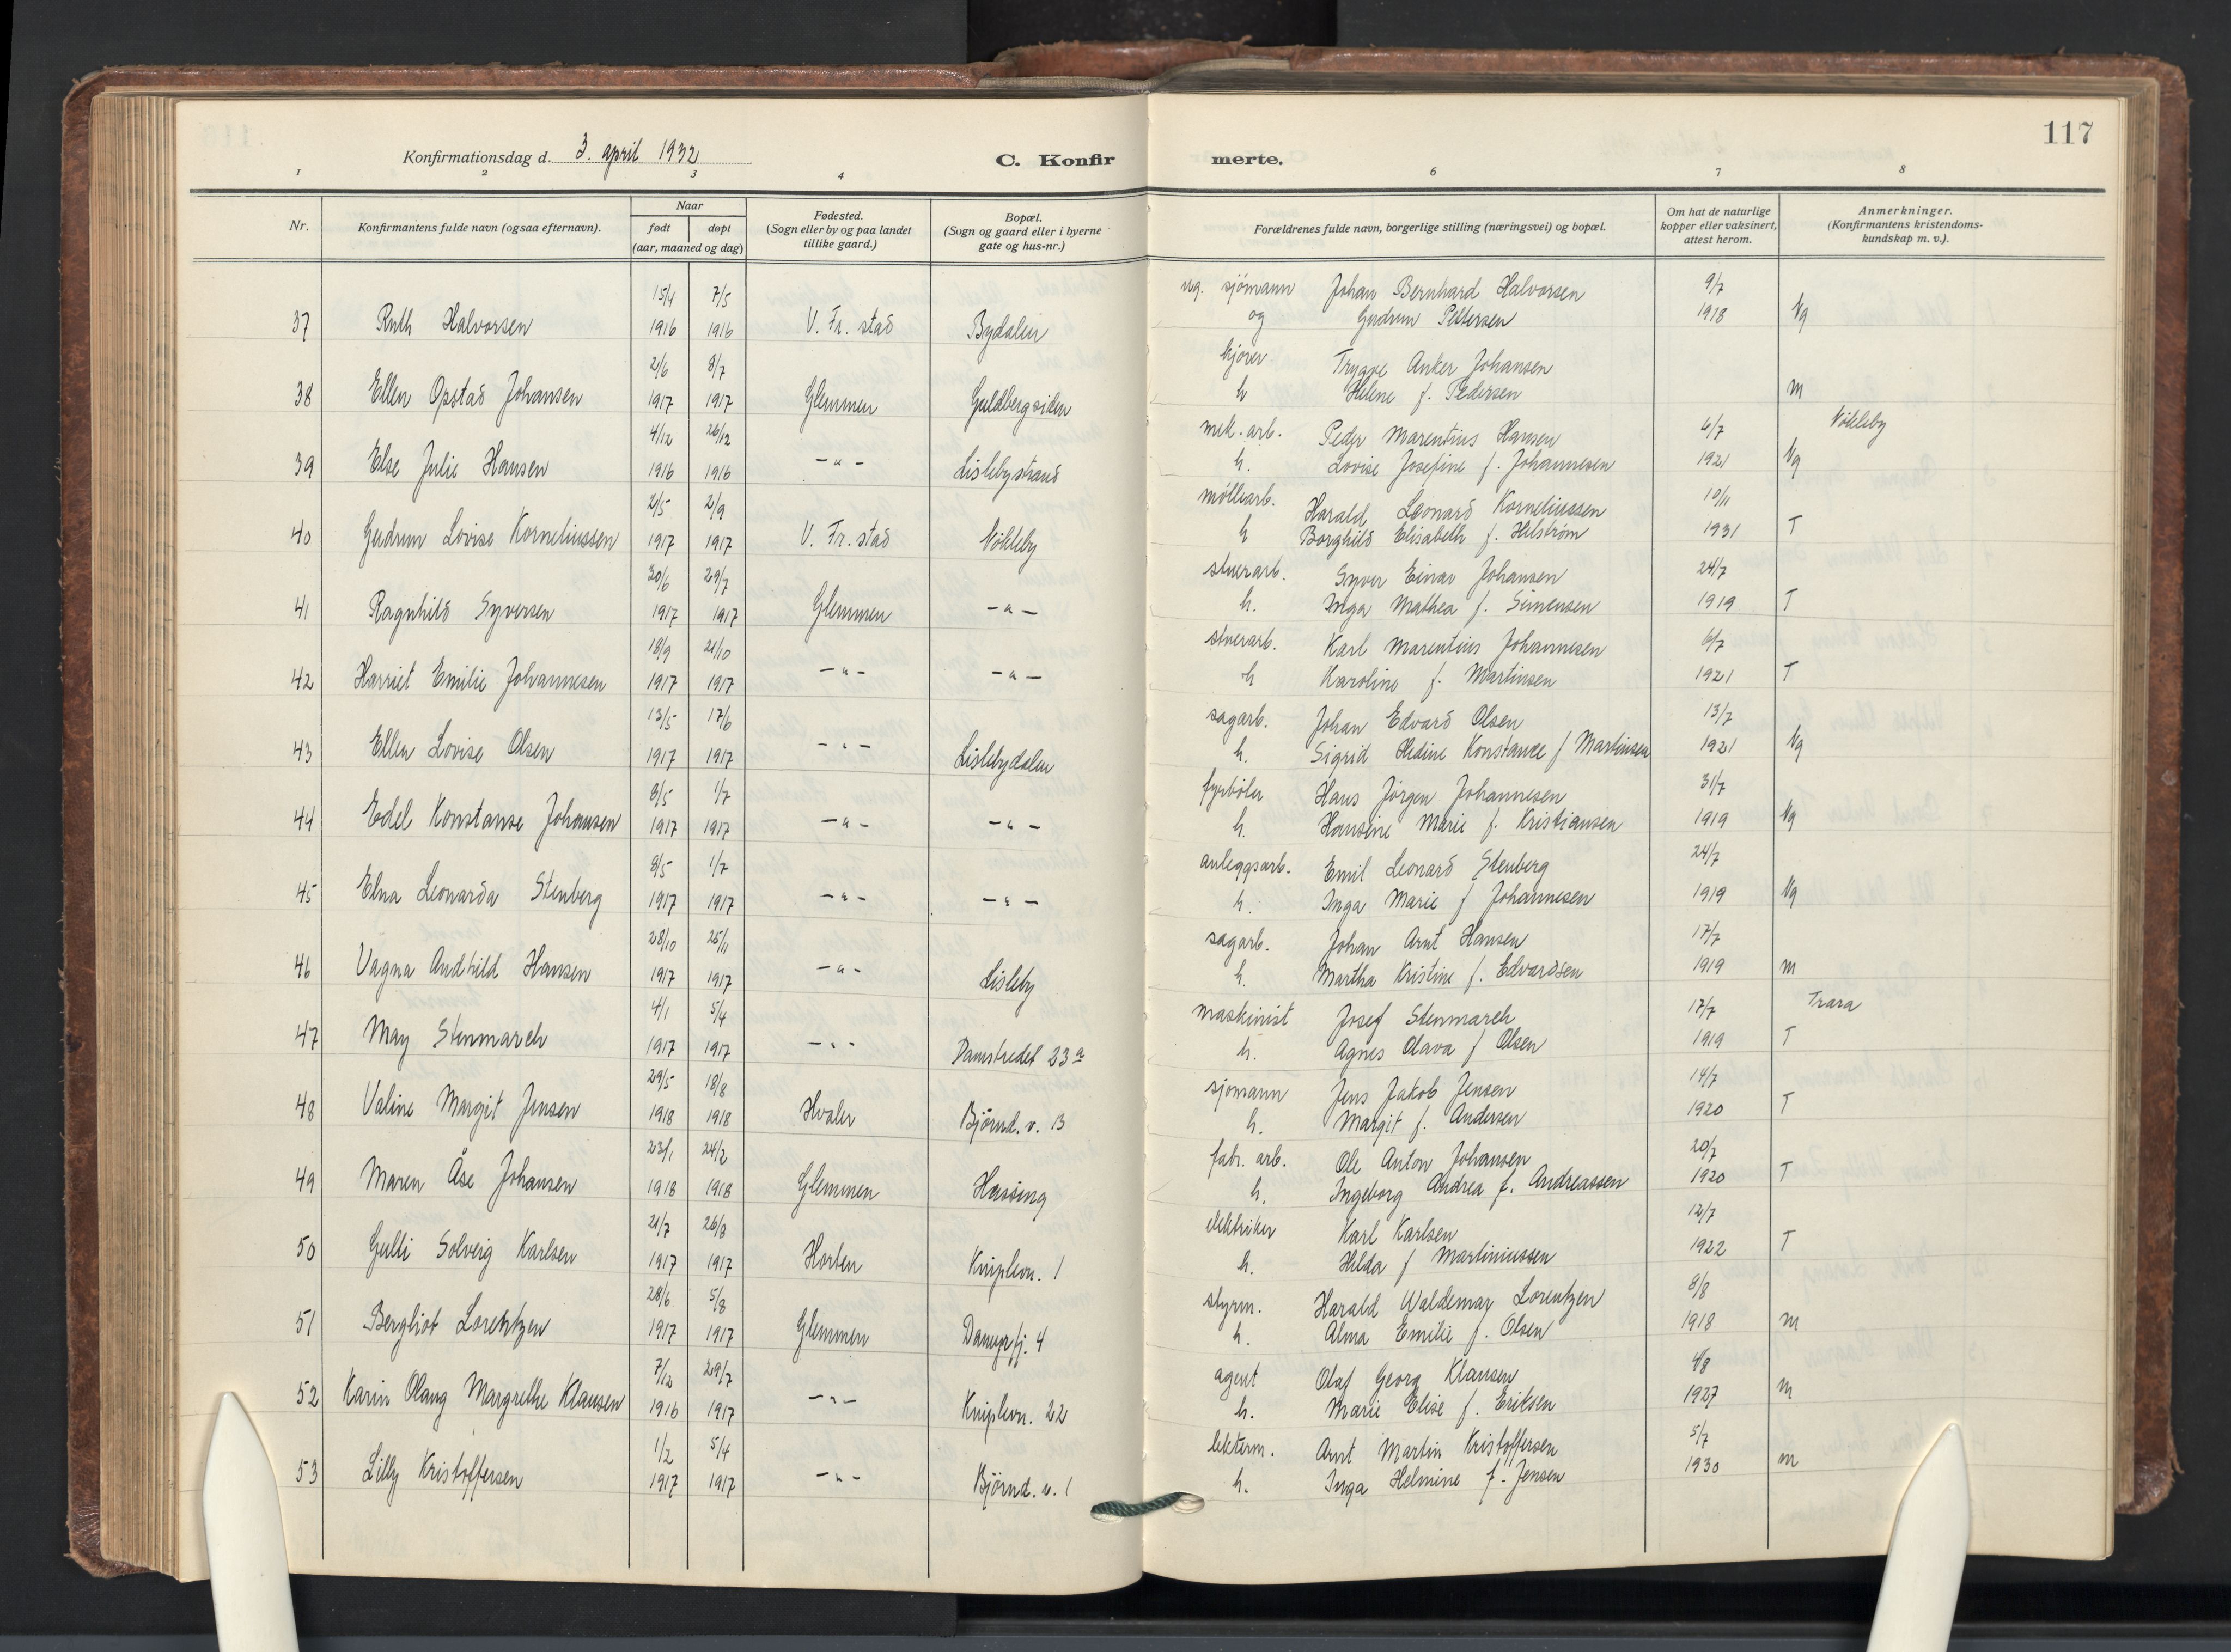 117
Konfirmationsdag d. 3. april 1932 C. Konfir merte.
1 2 3 4 6 7 8
Nr. Konfirmantens fulde navn (ogsaa efternavn). Naar født døpt (aar, maaned og dag) Fødested. (Sogn eller by og paa landet tillike gaard.) Bopæl. (Sogn og gaard eller i byerne gate og hus-nr.) Forældrenes fulde navn, borgerlige stilling (næringsvei) og bopæl. Om hat de naturlige kopper eller vaksinert, attest herom. Anmerkninger. (Konfirmantens kristendoms-kundskap m. v.).
15/4 7/5 ug. sjømann Johan Bernhard Halvorsen 9/7
37 Ruth Halvorsen 1916 1916 V. Fr. stad Bydalen og Gudrun Pettersen 1918 Ng
2/6 8/7 kjører Trygve Anker Johansen
38 Ellen Opstad Johansen 1917 1917 Glemmen Guldbergsiden h Helene f. Pedersen m
4/12 26/12 mek. arb. Peder Marentius Hansen 6/7 Nökleby
39 Else Julie Hansen 1916 1916 -"- Lislebystrand h. Lovise Josefine f. Johannesen 1921 Ng
2/5 2/9 möllearb. Harald Leonard Korneliussen 10/11
40 Gudrun Lovise Korneliussen 1917 1917 V. Fr. stad Nökleby h Borghild Elisabeth f. Helström 1931 T
30/6 29/7 stuerarb. Syver Einar Johansen 24/7
41 Ragnhild Syversen 1917 1917 Glemmen -"- h. Inga Mathea f. Simensen 1919 T
18/9 21/10 stuerarb. Karl Marentius Johannesen 6/7
42 Harriet Emilie Johannesen 1917 1917 -"- -"- h Karoline f. Martinsen 1921 T
13/5 17/6 sagarb. Johan Edvard Olsen 13/7
43 Ellen Lovise Olsen 1917 1917 -"- Lislebydalen h. Sigrid Hedine Konstanse f Martinsen 1921 Ng
8/5 1/7 fyrböter Hans Jörgen Johannesen 31/7
44 Edel Konstanse Johansen 1917 1917 -"- -"- h. Hansine Marie f. Kristiansen 1919 Ng
8/5 1/7 anleggsarb. Emil Leonard Stenberg 24/7
45 Elna Leonarda Stenberg 1917 1917 -"- -"- h. Inga Marie f Johannesen 1919 Ng
28/10 25/11 sagarb. Johan Arnt Hansen 17/7
46 Vagna Andhild Hansen 1917 1917 -"- Lisleby h. Martha Kristine f. Edvardsen 1919 m
4/1 5/4 maskinist Josef Stenmarch 17/7 Trara
47 May Stenmarch 1917 1917 -"- Damstredet 23a h. Agnes Olava f Olsen 1919 T
29/5 18/8 sjømann Jens Jakob Jensen 14/7
48 Valine Margit Jensen 1918 1918 Hvaler Björnd. v. 13 h. Margit f. Andersen 1920 T
23/1 24/2 fabr. arb. Ole Anton Johansen 20/7
49 Maren Åse Johansen 1918 1918 Glemmen Hassing h. Ingeborg Andrea f. Andreassen 1920 T
21/7 26/8 elektriker Karl Karlsen 12/7
50 Gulli Solveig Karlsen 1917 1917 Horten Kniplevn. 1 h. Hilda f Martiniussen 1922 T
28/6 5/8 styrm. Harald Waldemar Lorentzen 8/8
51 Bergliot Lorentzen 1917 1917 Glemmen 4 h. Alma Emilie f. Olsen 1918 m
7/12 29/7 agent Olaf Georg Klausen 4/8
52 Karin Olaug Margrethe Klausen 1916 1917 -"- Kniplevn. 22 h. Marie Elise f. Eriksen 1927 m
1/2 5/4 lekterm. Arnt Martin Kristoffersen 5/7
53 Lilly Kristoffersen 1917 1917 -"- Björnd. v. 1 h. Inga Helmine f. Jensen 1930 m